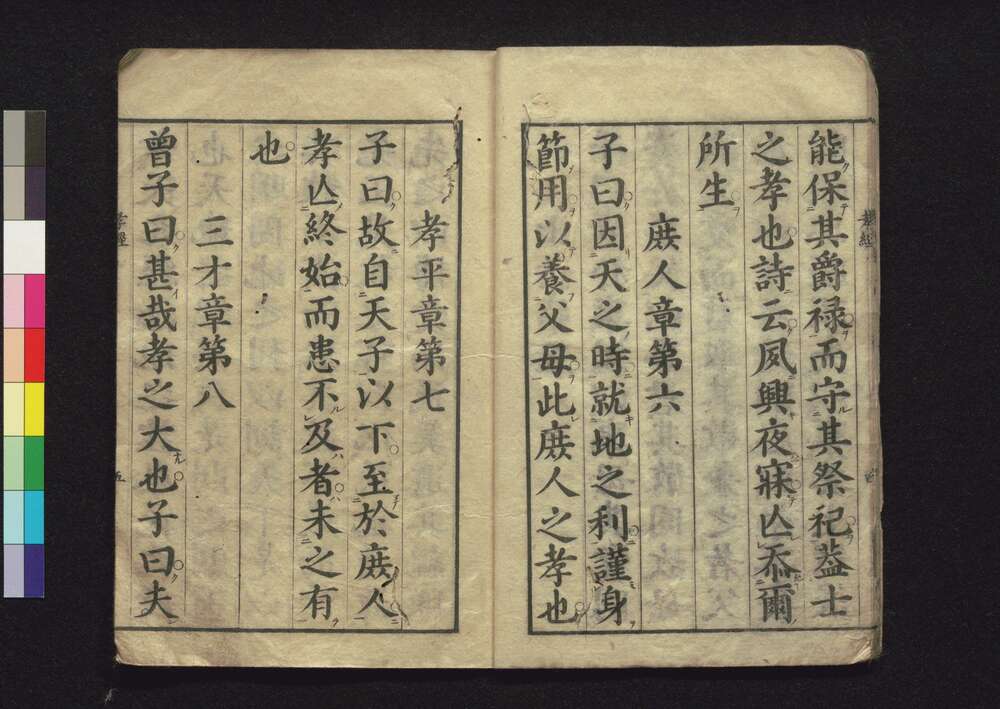 能保其爵禄而守其祭祀葢士
之孝也詩云夙興夜寐亾忝爾
所生
庻人章第六
子曰因天之時就地之利謹身
節用以養父母此庻人之孝也
孝平章第七
子曰故自天子以下至於庻人
孝亾終始而患不及者未之有
也
三才章第八
曽子曰甚哉孝之大也子曰夫